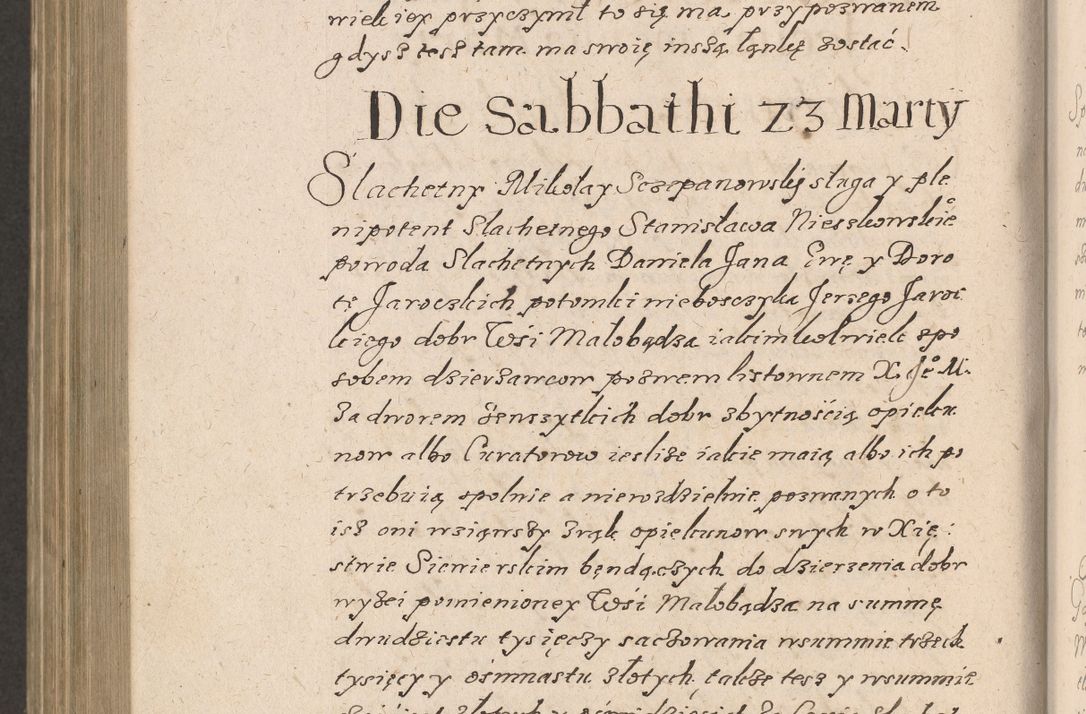 wielkiey przyczynił to się ma, przypozwanem
gdysz tesz tam ma swoię inszą łąnkę zostać.
Die Sabbathi 23 Marty
Slachetny Mikołay Sczepanowskij sługa y ple
nipotent Slachetnego Stanisława Nieszkowskie°
powoda Slachetnych Daniela Jana Ewę y Doro
tę Jaroczkich potomki nieboszczyka Jerzego Jaroc
kiego dobr Wśi Małobądza iakimkolwiek spo
sobem dzierżawcow pozwem listownem X. Je° M.
Za dworem ze wszytkich dobr zbytnośćią opieku
now albo Curatorow ieslize iakie maią albo ich po
trzebuią spolnie a nierozdzielnie pozwanych o to
isz oni wziąwszy zrąk opiekunow swych w Xię:
stwie Siewierskim będączych do dzierzenia dobr
wyżei pomienioney Wśi Małobądza na summę
dwudziestu tysięczy sachowania wsummie trzech
tysięcy y ośmnastu złotych, takze tesz y wsummie